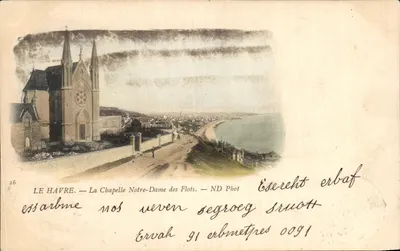 16 LE HAVRE. — La Chapelle Notre-Dame des Flots. — ND Phot
Esereht erbaf
essarbme nos ueven segroeg
Ervah 91 erbmetpes 0091